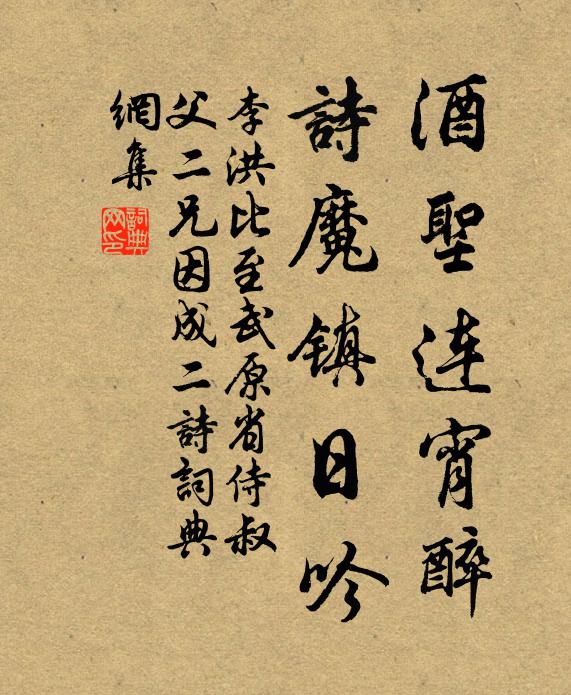 酒聖连宵醉
詩魔镇日吟
李洪比至武原省侍叔
父二兄因成二詩詞典
網集
詞典
网印